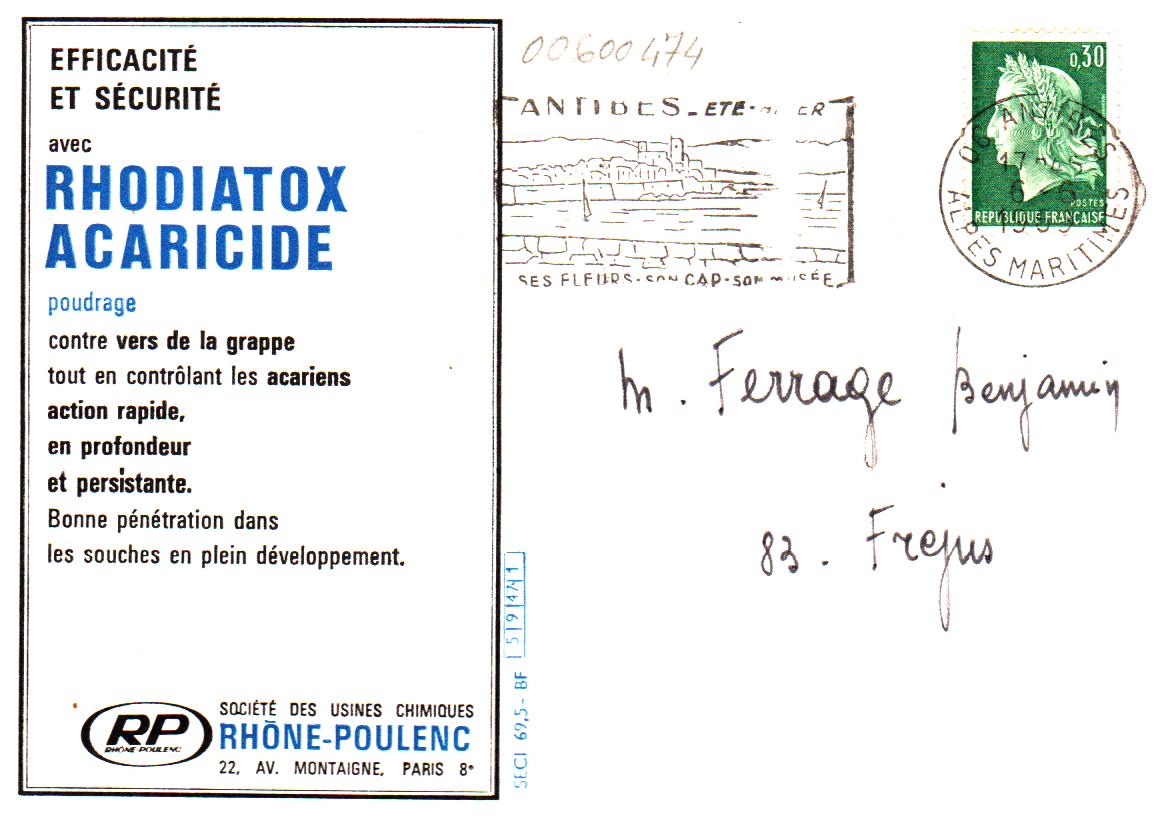 EFFICACITÉ
ET SÉCURITÉ
avec
RHODIATOX
ACARICIDE
poudrage
contre vers de la grappe
tout en contrôlant les acariens
action rapide,
en profondeur
et persistante.
Bonne pénétration dans
les souches en plein développement.
RP
RHÔNE-POULENC
SOCIÉTÉ DES USINES CHIMIQUES
RHÔNE-POULENC
22, AV. MONTAIGNE, PARIS 8e
SECI 69,5 - BF 59441
00600474
ANTIBES - ETE -
SES FLEURS - SON CAP - SON MUSÉE
0,30
POSTES
REPUBLIQUE FRANÇAISE
06 ANTIBES
17
6 - 5
1969
ALPES MARITIMES
M. Ferrage Benjamin
83. Frejus